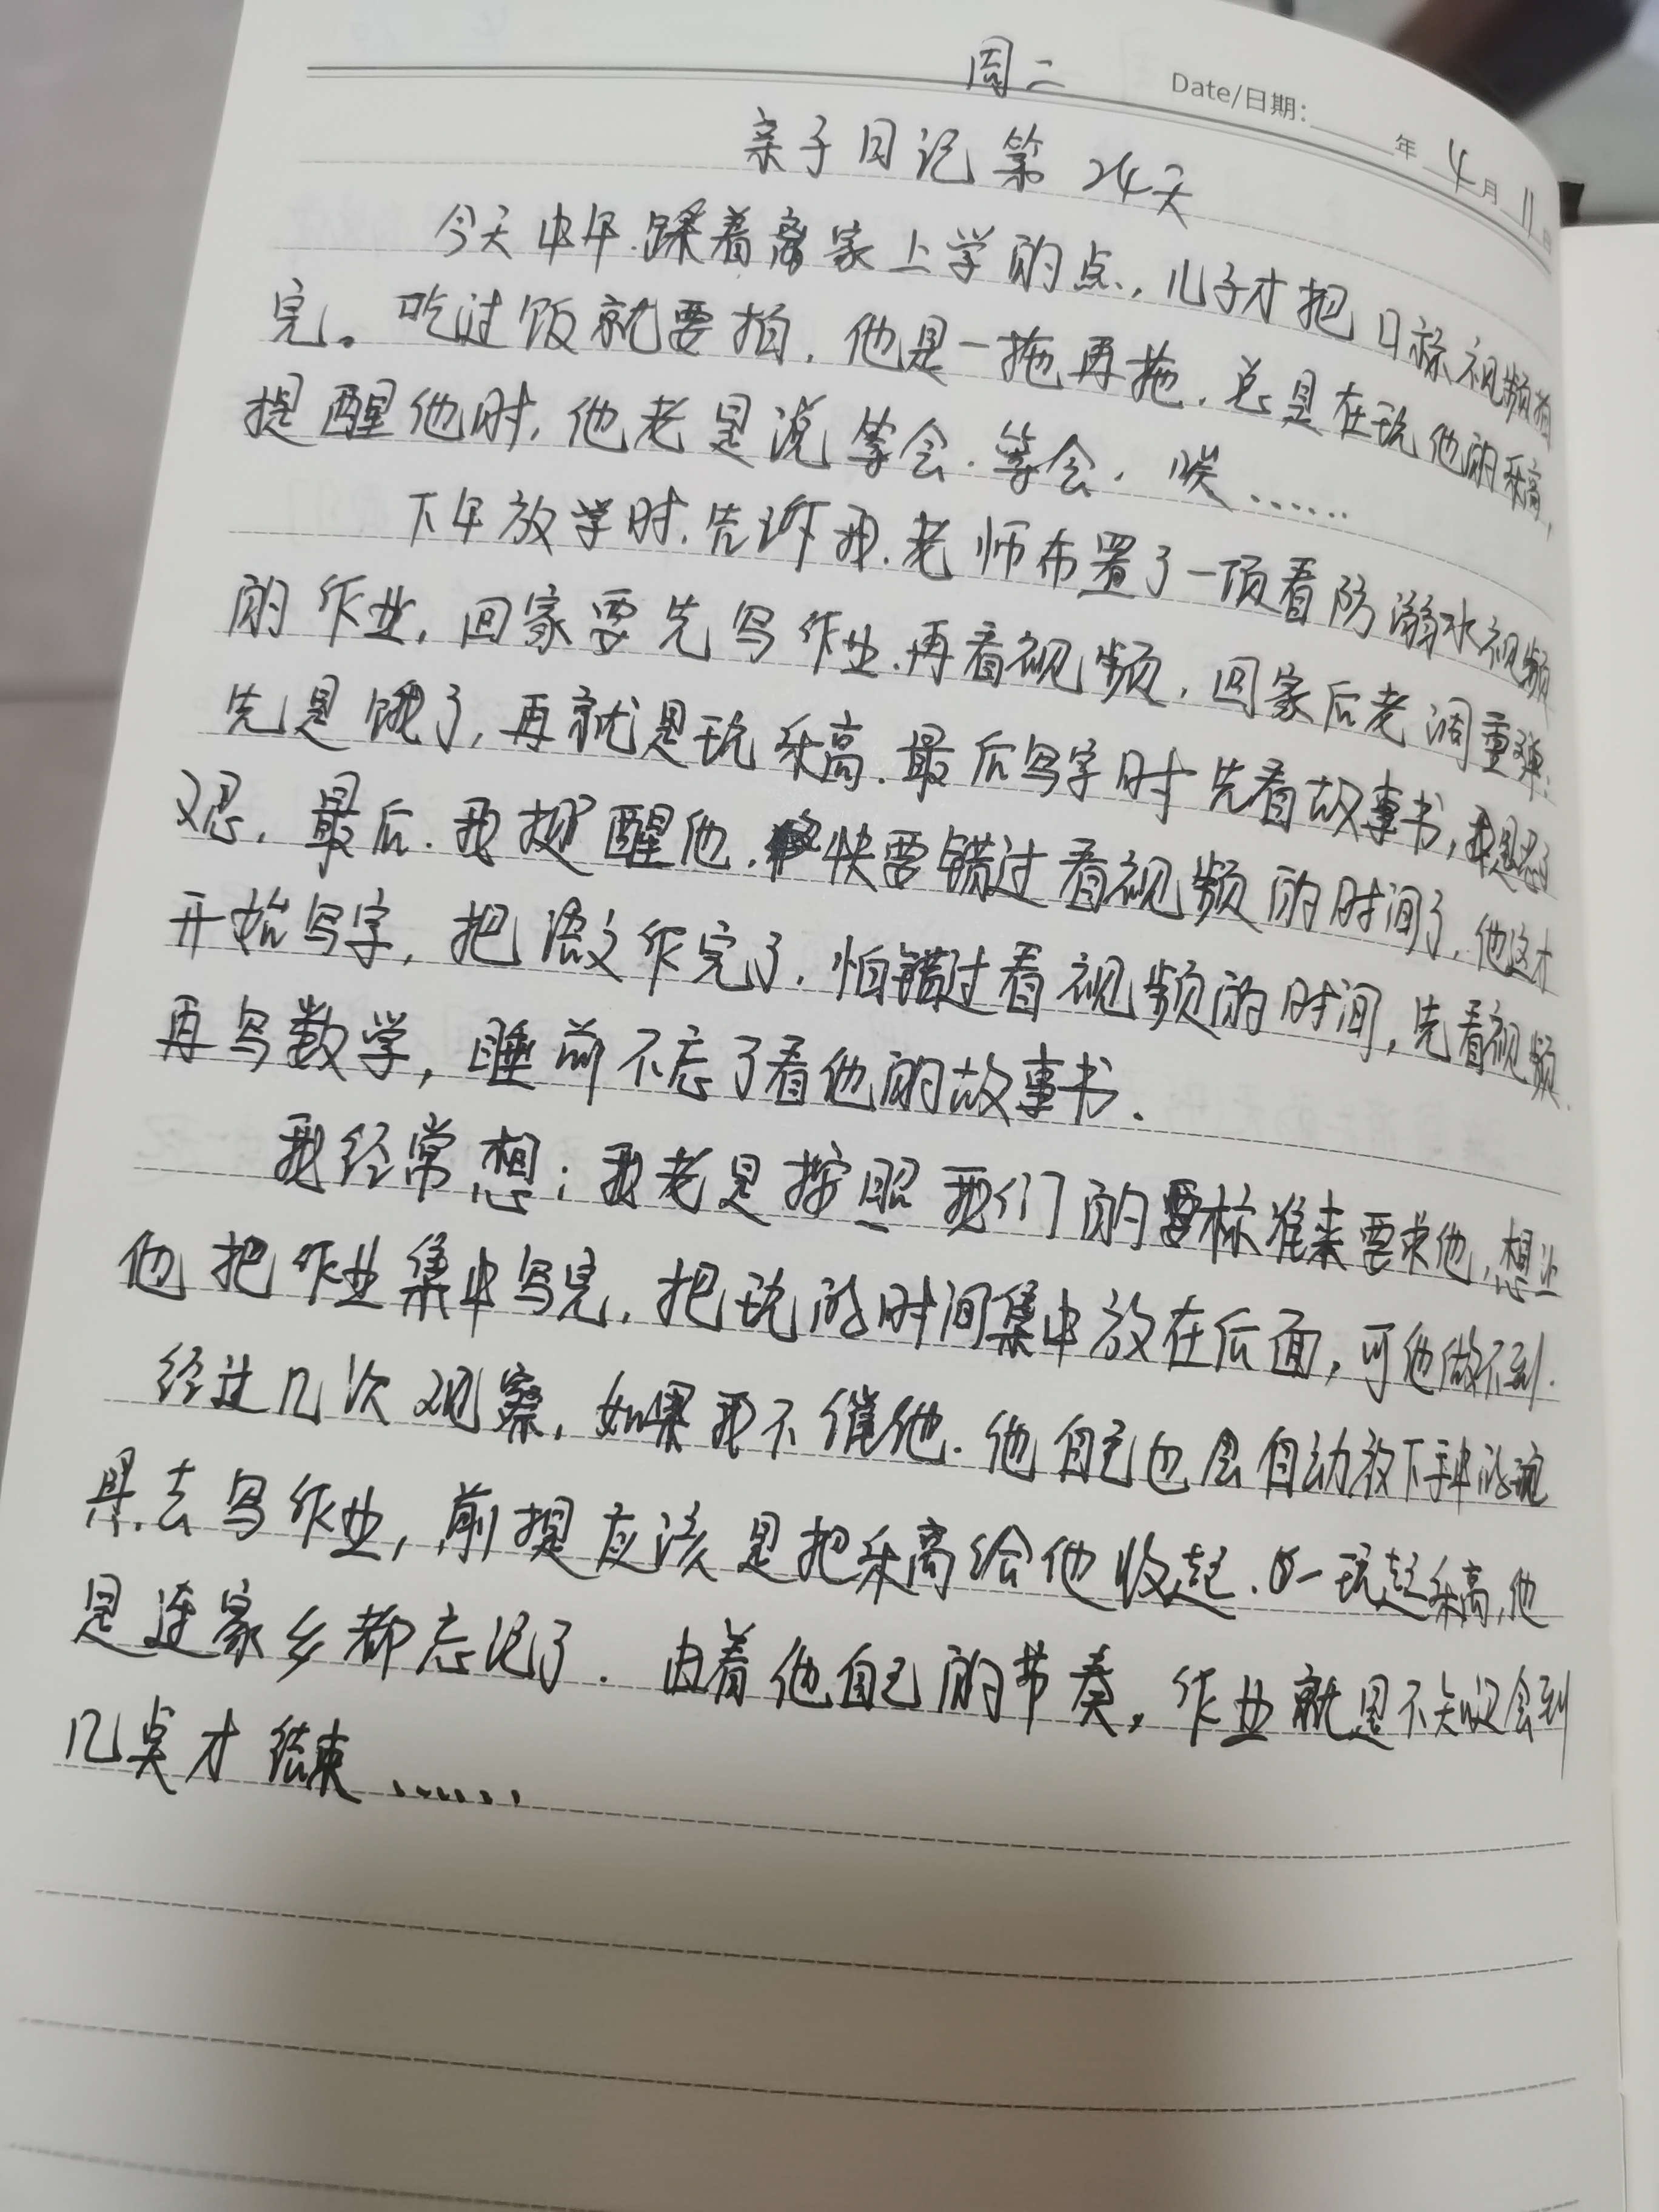 周二 Date/日期: 年 4月 11日
亲子日记第24天
今天中午踩着离家上学的点,儿子才把口标视频拍
完。吃过饭就要拍,他是一拖再拖,总是在玩他的乐高,
提醒他时,他老是说等会,等会,唉……
下午放学时,告诉我,老师布置了一项看防溺水视频
的作业,回家要先写作业,再看视频,回家后老调重弹:
先是饿了,再就是玩乐高,最后写字时先看故事书,
最后,我提醒他,快要错过看视频的时间了,他这才
开始写字,把语文作完了,怕错过看视频的时间,先看视频,
再写数学,睡前不忘了看他的故事书.
我经常想:我老是按照我们的标准来要求他,想让
他把作业集中写完,把玩的时间集中放在后面,可他做不到.
经过几次观察,如果我不催他.他自己也会自动放下手中的玩
具去写作业,前提应该是把乐高给他收起,一玩起乐高,他
是连家乡都忘记了.由着他自己的节奏,作业就是不知道会到
几点才结束……